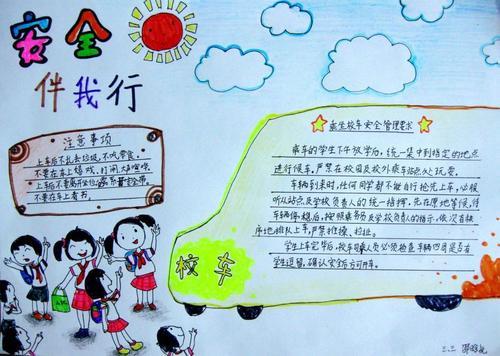 安全
伴我行
注意事项
上车后不乱丢垃圾，不吃零食。
不要在车上嬉戏、打闹、大声喧哗。
上车后不要离开坐位，系安全带。
不要在车上看书。
乘坐校车安全管理要求
乘车的学生下午放学后，统一集中到指定的地点
进行候车，严禁在校园及校外乘车站点处玩耍。
车辆到来时，任何同学都不能自行抢先上车，必须
听从站点及学校负责人的统一指挥，先在原地等候，待
车辆停稳后，按照乘务员及学校负责人的指示，依次有秩
序地排队上车，严禁推搡、拉扯。
学生上车完毕后，校车乘人员必须检查车辆四周是否有
学生逗留，确认安全后方可开车。
校车
三、三